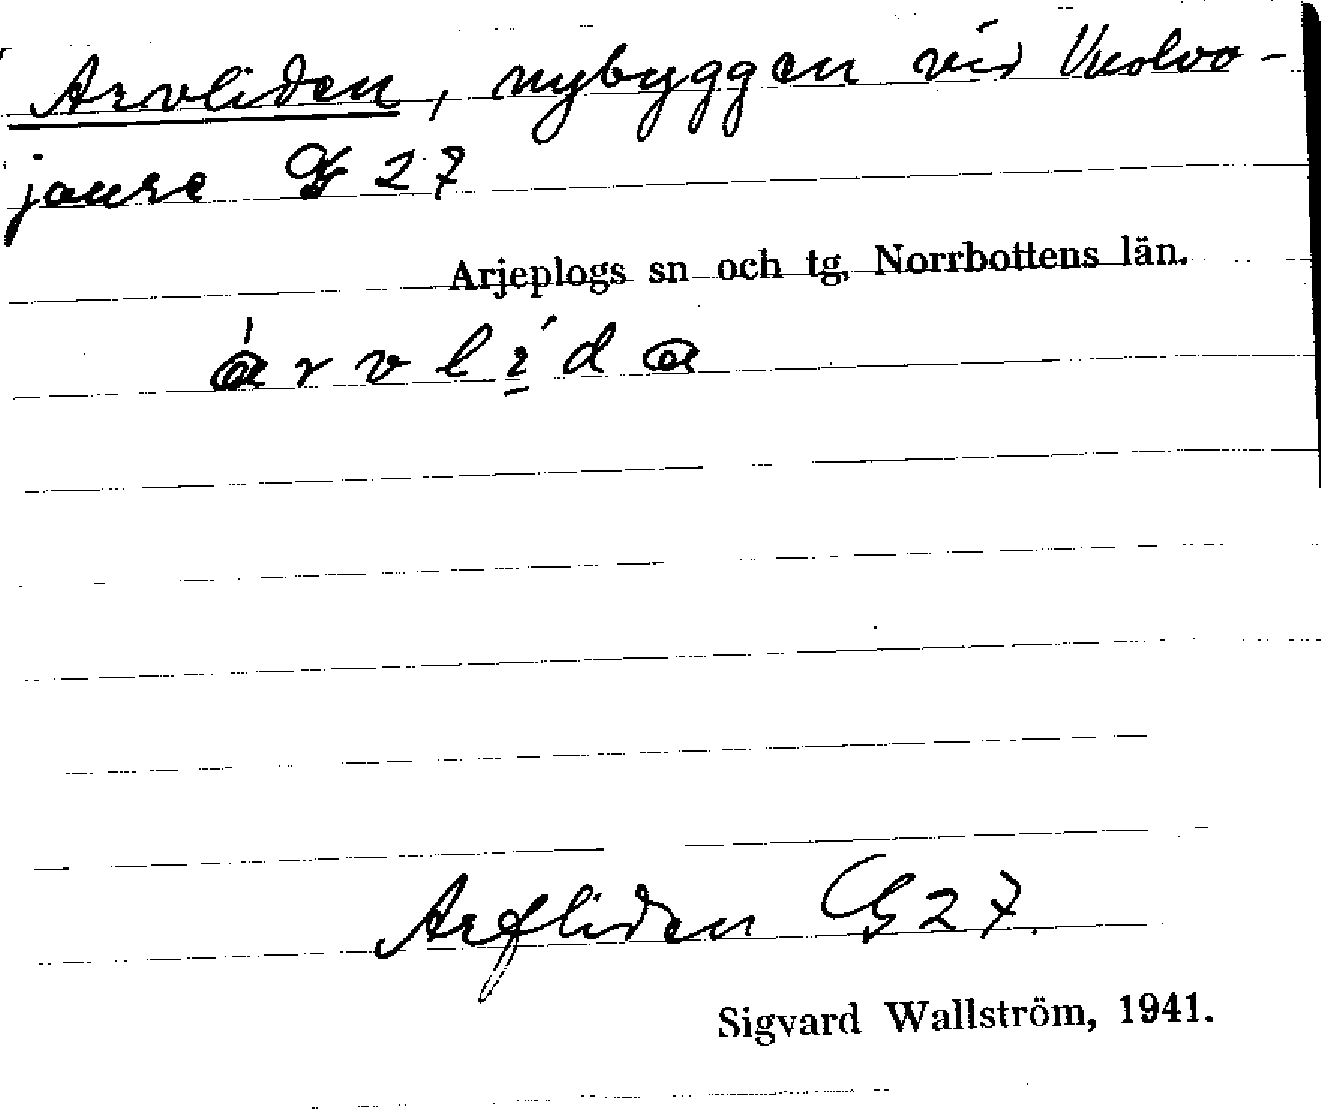 Arvliden, nybyggen vid Vuolvo-
jaure G 27
Arjeplogs sn och tg, Norrbottens län.
Arfliden G 27.
Sigvard Wallström, 1941.